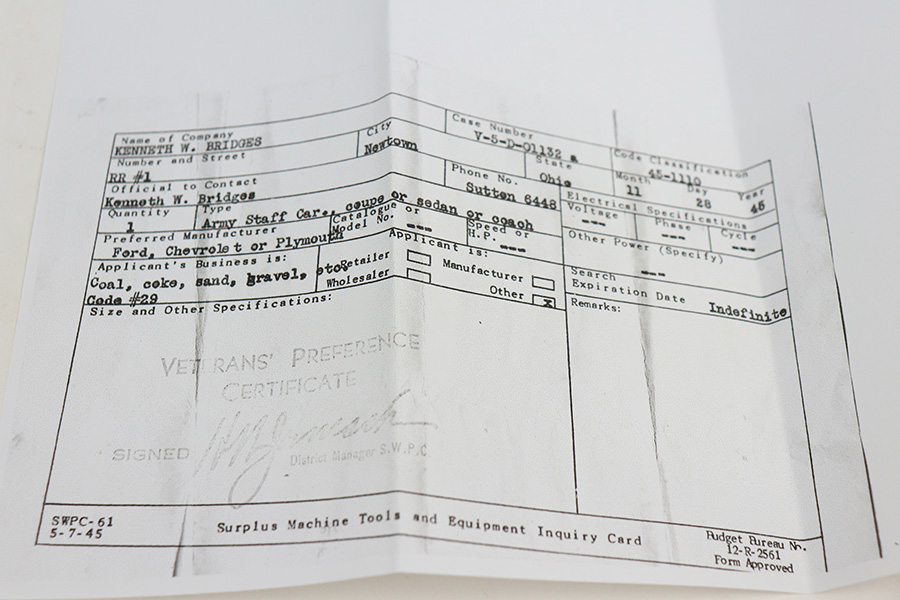 Name of Company
KENNETH W. BRIDGES
City
Newtown
Case Number
V-5-D-01132 a
Code Classification
45-1110
Number and Street
RR #1
State
Ohio
Month Day Year
11 28 45
Official to Contact
Kenneth W. Bridges
Phone No.
Sutton 6448
Electrical Specifications
Quantity
1
Type
Army Staff Car., coupe or sedan or coach
Voltage
---
Phase
---
Cycle
---
Preferred Manufacturer
Ford, Chevrolet or Plymouth
Catalogue or
Model No.
---
Speed or
H.P.
---
Other Power (Specify)
---
Applicant's Business is:
Coal, coke, sand, gravel, etc.
Code #29
Applicant is:
Retailer
Manufacturer
Wholesaler
Other x
Search
Expiration Date
Indefinite
Size and Other Specifications:
Remarks:
VETERANS' PREFERENCE
CERTIFICATE
SIGNED
District Manager S.W.P.C.
SWPC-61
5-7-45
Surplus Machine Tools and Equipment Inquiry Card
Budget Bureau No.
12-R-2561
Form Approved